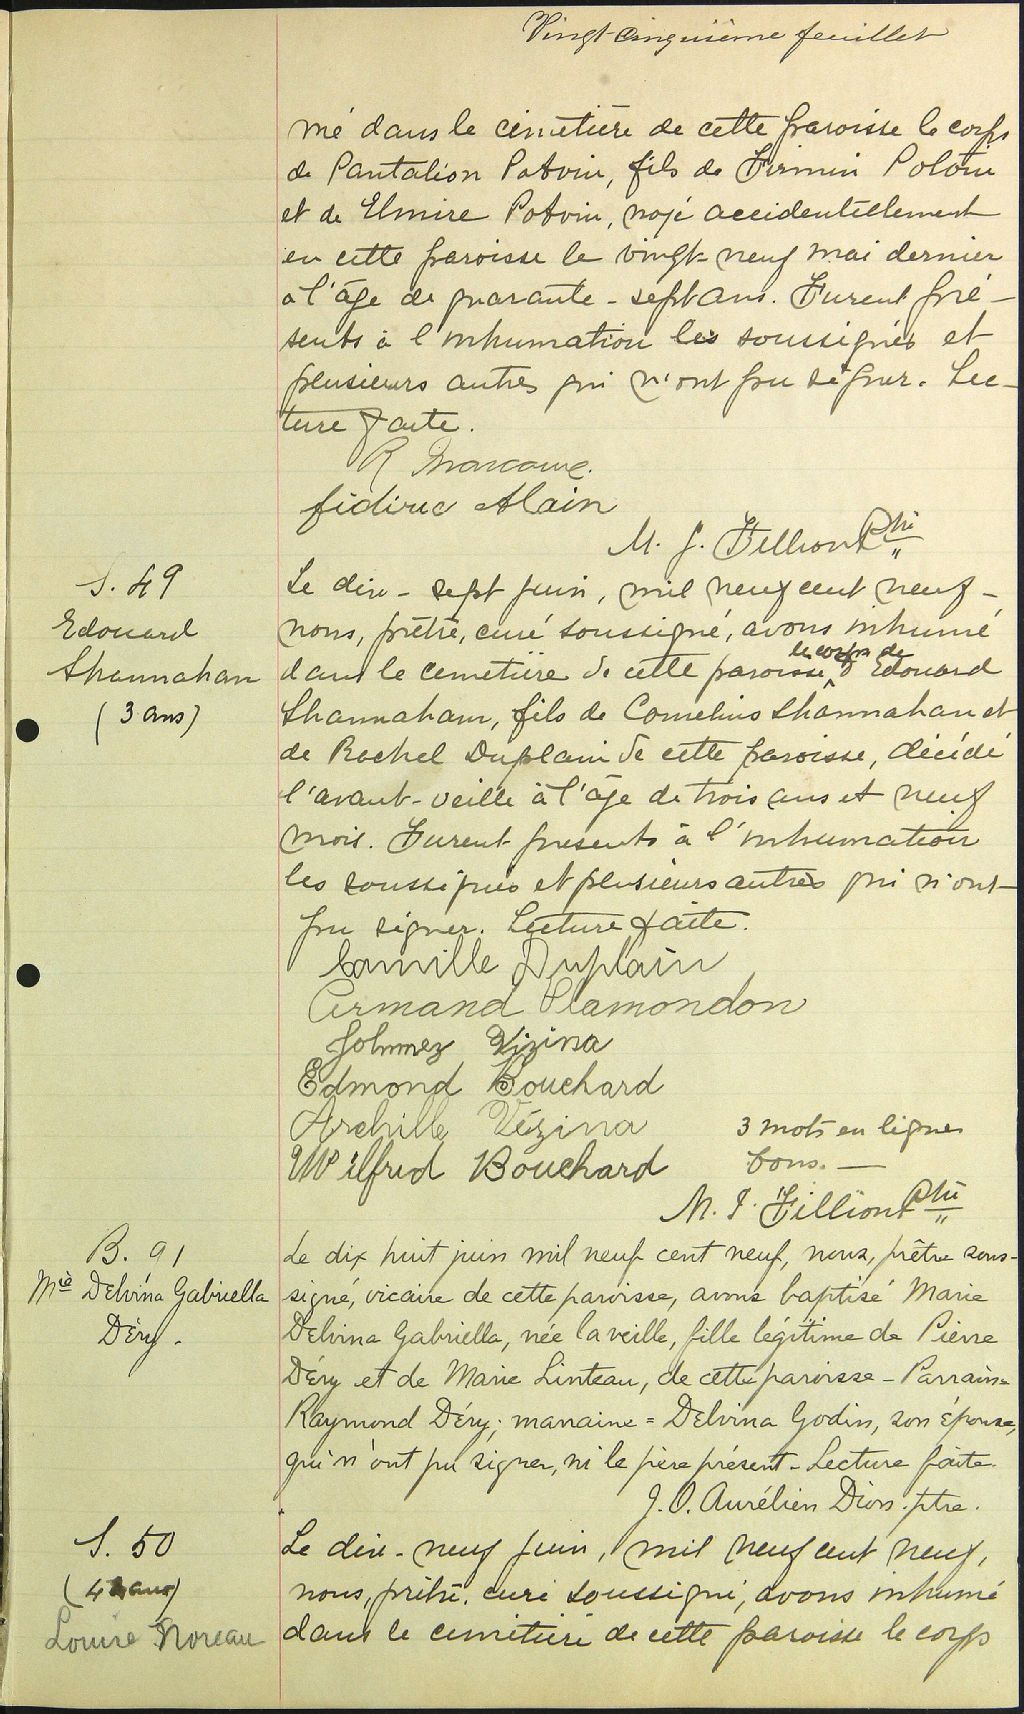 Vingt cinquième feuillet
mé dans le cimetière de cette paroisse le corps
de Pantaléon Potvin, fils de Firmin Potvin
et de Elmire Potvin, noyé accidentellement
en cette paroisse le vingt-neuf mai dernier
à l'âge de quarante-sept ans. Furent pré-
sents à l'inhumation les soussignés et
plusieurs autres qui n'ont pu signer. Lec-
ture faite.
R
fidiric Alain
M. J. Fillion Ptre
S. 49
Edouard
Shannahan
(3 ans)
Le dix-sept juin, mil neuf cent neuf-
nous, prêtre, curé soussigné, avons inhumé
dans le cimetière de cette paroisse le corps de Edouard
Shannahan, fils de Cornelius Shannahan et
de Rachel Duplain de cette paroisse, décédé
l'avant-veille à l'âge de trois ans et neuf
mois. Furent présents à l'inhumation
les soussignés et plusieurs autres qui n'ont
pu signer. Lecture faite.
Camille Duplain
Armand Plamondon
Johnnez Vizina
Edmond Bouchard
Archille Vézina
3 mots en ligne
Wilfrid Bouchard
bons. —
M. J. Fillion Ptre
B. 91
Mie Delvina Gabriella
Déry.
Le dix huit juin mil neuf cent neuf, nous, prêtre sous-
signé, vicaire de cette paroisse, avons baptisé Marie
Delvina Gabriella, née la veille, fille légitime de Pierre
Déry et de Marie Linteau, de cette paroisse - Parrain=
Raymond Déry; marraine = Delvina Godin, son épouse,
qui n'ont pu signer, ni le père présent - Lecture faite.
J. O. Aurélien Dion. ptre.
S. 50
(4 ans)
Louise Noreau
Le dix-neuf juin, mil neuf cent neuf,
nous, prêtre, curé soussigné, avons inhumé
dans le cimetière de cette paroisse le corps